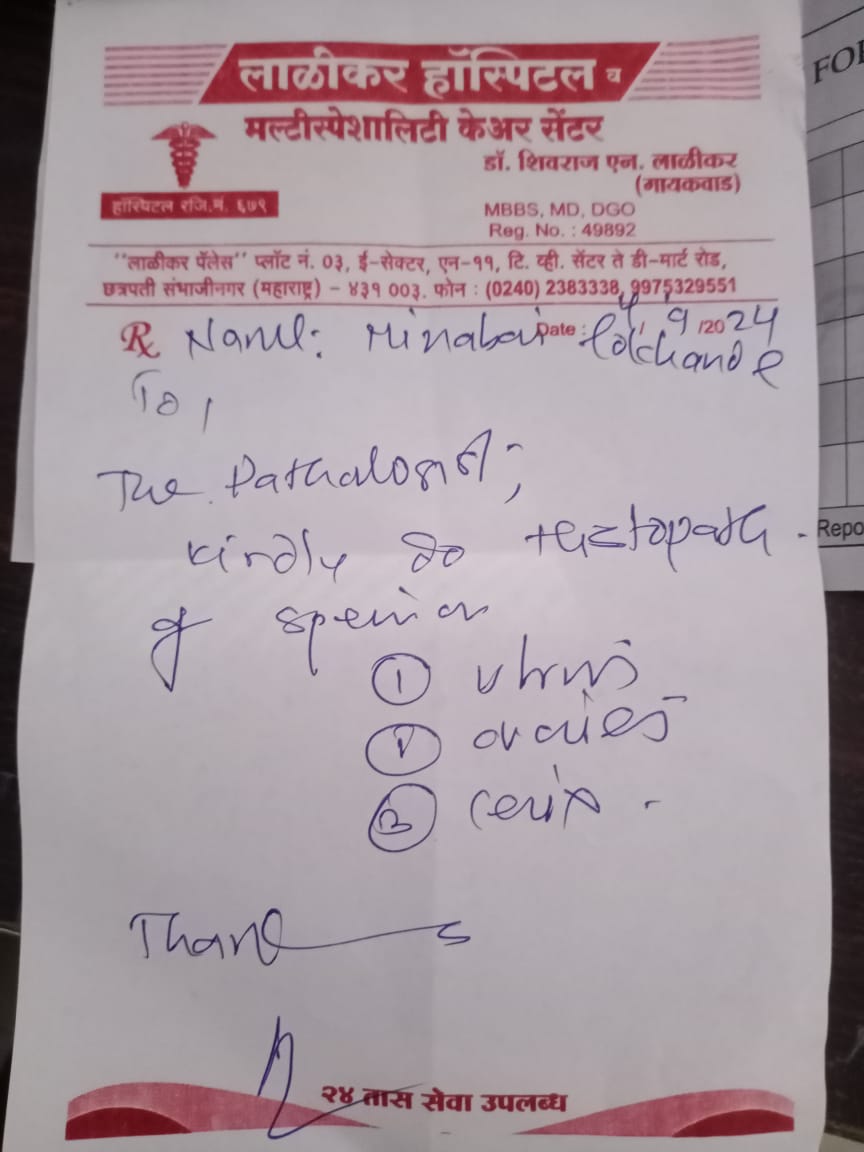 लाळीकर हॉस्पिटल व
मल्टीस्पेशालिटी केअर सेंटर
डॉ. शिवराज एन. लाळीकर
(गायकवाड)
हॉस्पिटल रजि.नं. ६७९
MBBS, MD, DGO
Reg. No. : 49892
"लाळीकर पॅलेस" प्लॉट नं. ०३, ई-सेक्टर, एन-११, टि. व्ही. सेंटर ते डी-मार्ट रोड,
छत्रपती संभाजीनगर (महाराष्ट्र) - ४३१ ००३. फोन : (0240) 2383338, 9975329551
Date : 4/9/2024
Rx Name: Minabai
To,
The Pathalogist;
Kindly do Histopath -
of
① utrus
② ovaries
③ cervix -
Thanks
२४ तास सेवा उपलब्ध
FO
Repo